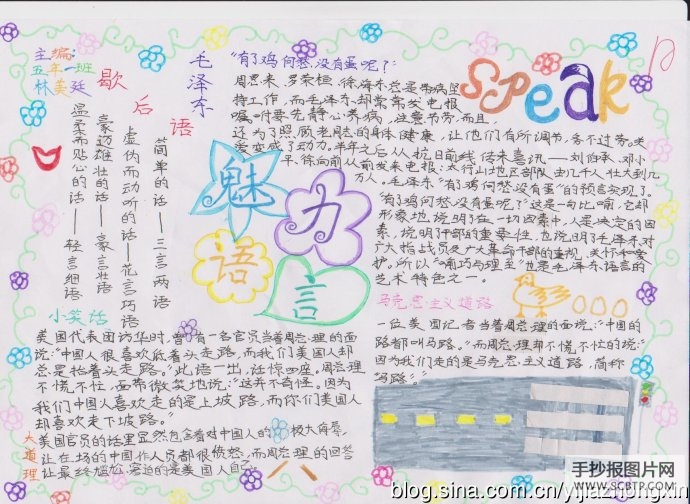 主编:
五年一班
林美廷
歇后语
简单的话——三言两语
虚伪而动听的话——花言巧语
豪迈雄壮的话——豪言壮语
温柔而贴心的话——轻言细语
毛泽东
"有了鸡何愁没有蛋呢?"
周恩来、罗荣桓、徐海东总是带病坚
持工作,而毛泽东却常常发电报
嘱咐要先静心养病,注意节劳,而且,
还为了照顾老同志的身体健康,让他们有所调节,务不过劳。关
爱变成了动力。半年之后从抗日前线传来喜讯——刘伯承、邓小
平、徐向前从前发来电报:太行山地区部队由几千人壮大到几
万人。毛泽东"有了鸡何愁没有蛋"的预言实现了。
"有了鸡何愁没有蛋呢?"这是一句比喻,它却
形象地说明了在一切因素中,人是决定的因
素,说明了干部的重要性,也说明了毛泽东对
广大指战员及广大革命干部的重视、关怀和爱
护。所以"喻巧而理至"也是毛泽东语言的
艺术特色之一。
Speak
魅力
语言
小笑话
美国代表团访华时,曾有一名官员当着周总理的面
说:"中国人很喜欢低着头走路,而我们美国人却
总是抬着头走路。"此语一出,话惊四座。周总理
不慌不忙,面带微笑地说:"这并不奇怪。因为
我们中国人喜欢走的是上坡路,而你们美国人
却喜欢走下坡路。"
大道理
美国官员的话里显然包含着对中国人的极大侮辱,
让在场的中国工作人员都很愤怒,而周总理的回答
让最终尴尬、窘迫的是美国人自己。
马克思主义道路
一位美国记者当着周总理的面说:"中国的
路都叫马路。"而周总理却不慌不忙的说:"
因为我们走的是马克思主义道路,简称
马路。"
手抄报图片网
WWW.SCBTP.COM